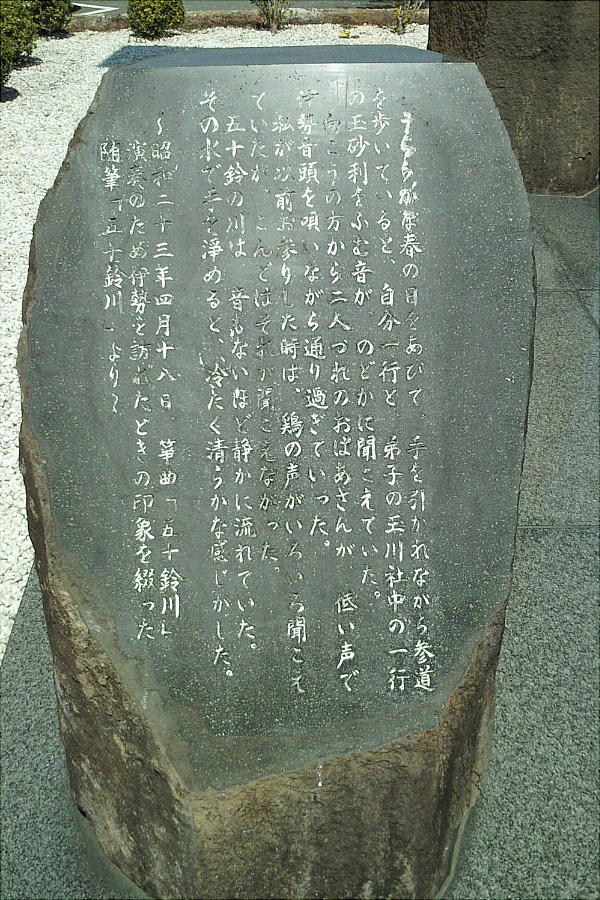 うららかな春の日をあびて、手を引かれながら参道
を歩いていると、自分一行と、弟子の玉川社中の一行
の玉砂利をふむ音が、のどかに聞こえていた。
向こうの方から二人づれのおばあさんが、低い声で
伊勢音頭を唄いながら通り過ぎていった。
私が以前お参りした時は、鶏の声がいろいろ聞こえ
ていたが、こんどはそれが聞こえなかった。
五十鈴の川は、音もないほど静かに流れていた。
その水で手を浄めると、冷たく清らかな感じがした。
～昭和二十三年四月十八日、箏曲「五十鈴川」
演奏のため伊勢を訪れたときの印象を綴った
随筆「五十鈴川」より～